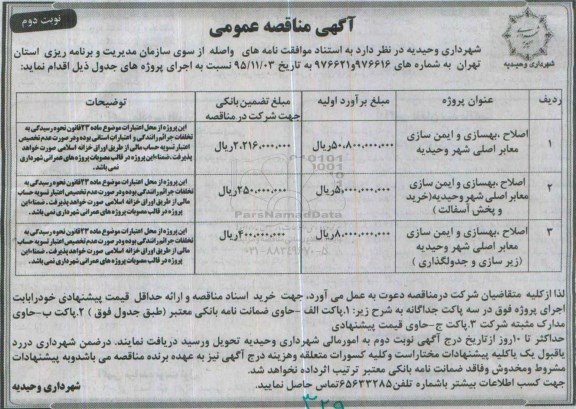 نوبت دوم
آگهی مناقصه عمومی
شهرداری وحیدیه
شهرداری وحیدیه در نظر دارد به استناد موافقت نامه های واصله از سوی سازمان مدیریت و برنامه ریزی استان
تهران به شماره های ۹۷۶۶۱۶و۹۷۶۶۲۱ به تاریخ ۹۵/۱۱/۰۳ نسبت به اجرای پروژه های جدول ذیل اقدام نماید:
ردیف عنوان پروژه مبلغ برآورد اولیه مبلغ تضمین بانکی جهت شرکت در مناقصه توضیحات
۱ اصلاح ،بهسازی و ایمن سازی معابر اصلی شهر وحیدیه ۵۰،۸۰۰،۰۰۰،۰۰۰ریال ۲،۲۱۶،۰۰۰،۰۰۰ریال این پروژه از محل اعتبارات موضوع ماده ۲۳قانون نحوه رسیدگی به تخلفات جرائم رانندگی و اعتبارات استانی بوده و در صورت عدم تخصیص اعتبار تسویه حساب مالی از طریق اوراق خزانه اسلامی صورت خواهد پذیرفت. ضمنا این پروژه در قالب مصوبات پروژه های عمرانی شهرداری نمی باشد.
۲ اصلاح ،بهسازی و ایمن سازی معابر اصلی شهر وحیدیه(خرید و پخش آسفالت ) ۵،۰۰۰،۰۰۰،۰۰۰ریال ۲۵۰،۰۰۰،۰۰۰ریال این پروژه از محل اعتبارات موضوع ماده ۲۳قانون نحوه رسیدگی به تخلفات جرائم رانندگی بوده و در صورت عدم تخصیص اعتبار تسویه حساب مالی از طریق اوراق خزانه اسلامی صورت خواهد پذیرفت. ضمنا این پروژه در قالب مصوبات پروژه های عمرانی شهرداری نمی باشد.
۳ اصلاح ،بهسازی و ایمن سازی معابر اصلی شهر وحیدیه (زیر سازی و جدولگذاری ) ۸،۰۰۰،۰۰۰،۰۰۰ریال ۴۰۰،۰۰۰،۰۰۰ریال این پروژه از محل اعتبارات موضوع ماده ۲۳قانون نحوه رسیدگی به تخلفات جرائم رانندگی بوده و در صورت عدم تخصیص اعتبار تسویه حساب مالی از طریق اوراق خزانه اسلامی صورت خواهد پذیرفت. ضمنا این پروژه در قالب مصوبات پروژه های عمرانی شهرداری نمی باشد.
ParsNamadData
لذا از کلیه متقاضیان شرکت در مناقصه دعوت به عمل می آورد، جهت خرید اسناد مناقصه و ارائه حداقل قیمت پیشنهادی خود رابابت
اجرای پروژه فوق در سه پاکت جداگانه به شرح زیر: ۱.پاکت الف -حاوی ضمانت نامه بانکی معتبر (طبق جدول فوق ) ۲.پاکت ب-حاوی
مدارک مثبته شرکت ۳.پاکت ج-حاوی قیمت پیشنهادی
حداکثر تا ۱۰روز ازتاریخ درج آگهی نوبت دوم به امورمالی شهرداری وحیدیه تحویل ورسید دریافت نمایند. درضمن شهرداری دررد
یاقبول یک یاکلیه پیشنهادات مختاراست وکلیه کسورات متعلقه وهزینه درج آگهی نیز به عهده برنده مناقصه می باشدوبه پیشنهادات
مشروط ومخدوش وفاقد ضمانت نامه بانکی معتبر ترتیب اثرداده نخواهد شد.
جهت کسب اطلاعات بیشتر باشماره تلفن۶۵۶۳۳۲۸۵تماس حاصل نمایید.
شهرداری وحیدیه
۳۲۹